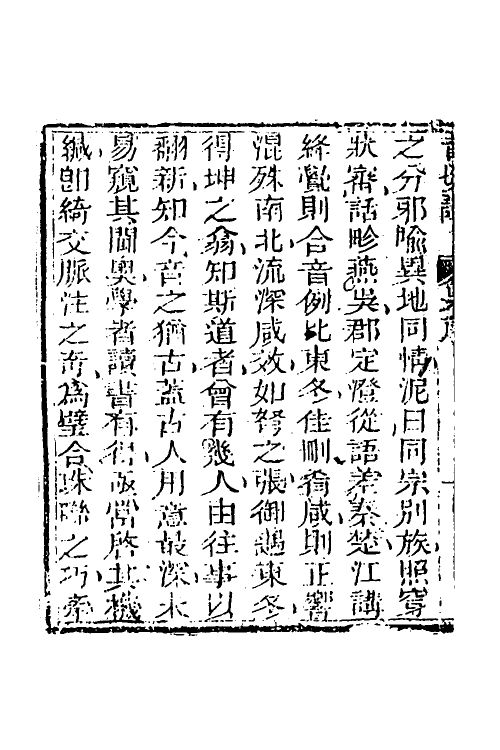 之分邪喻異地同情泥日同宗別族照穿
狀審話畛燕吳郡定澄從語差秦楚江講
絳覺則合音例比東冬佳刪肴咸則正響
混殊南北流深咸效如弩之張御遇東冬
得坤之翕知斯道者曾有幾人由往事以
翻新知今音之猶古蓋古人用意最深未
易窺其閫奧學者讀書有得啟當啓其機
緘即綺交脈注之奇為璧合珠聯之巧牽